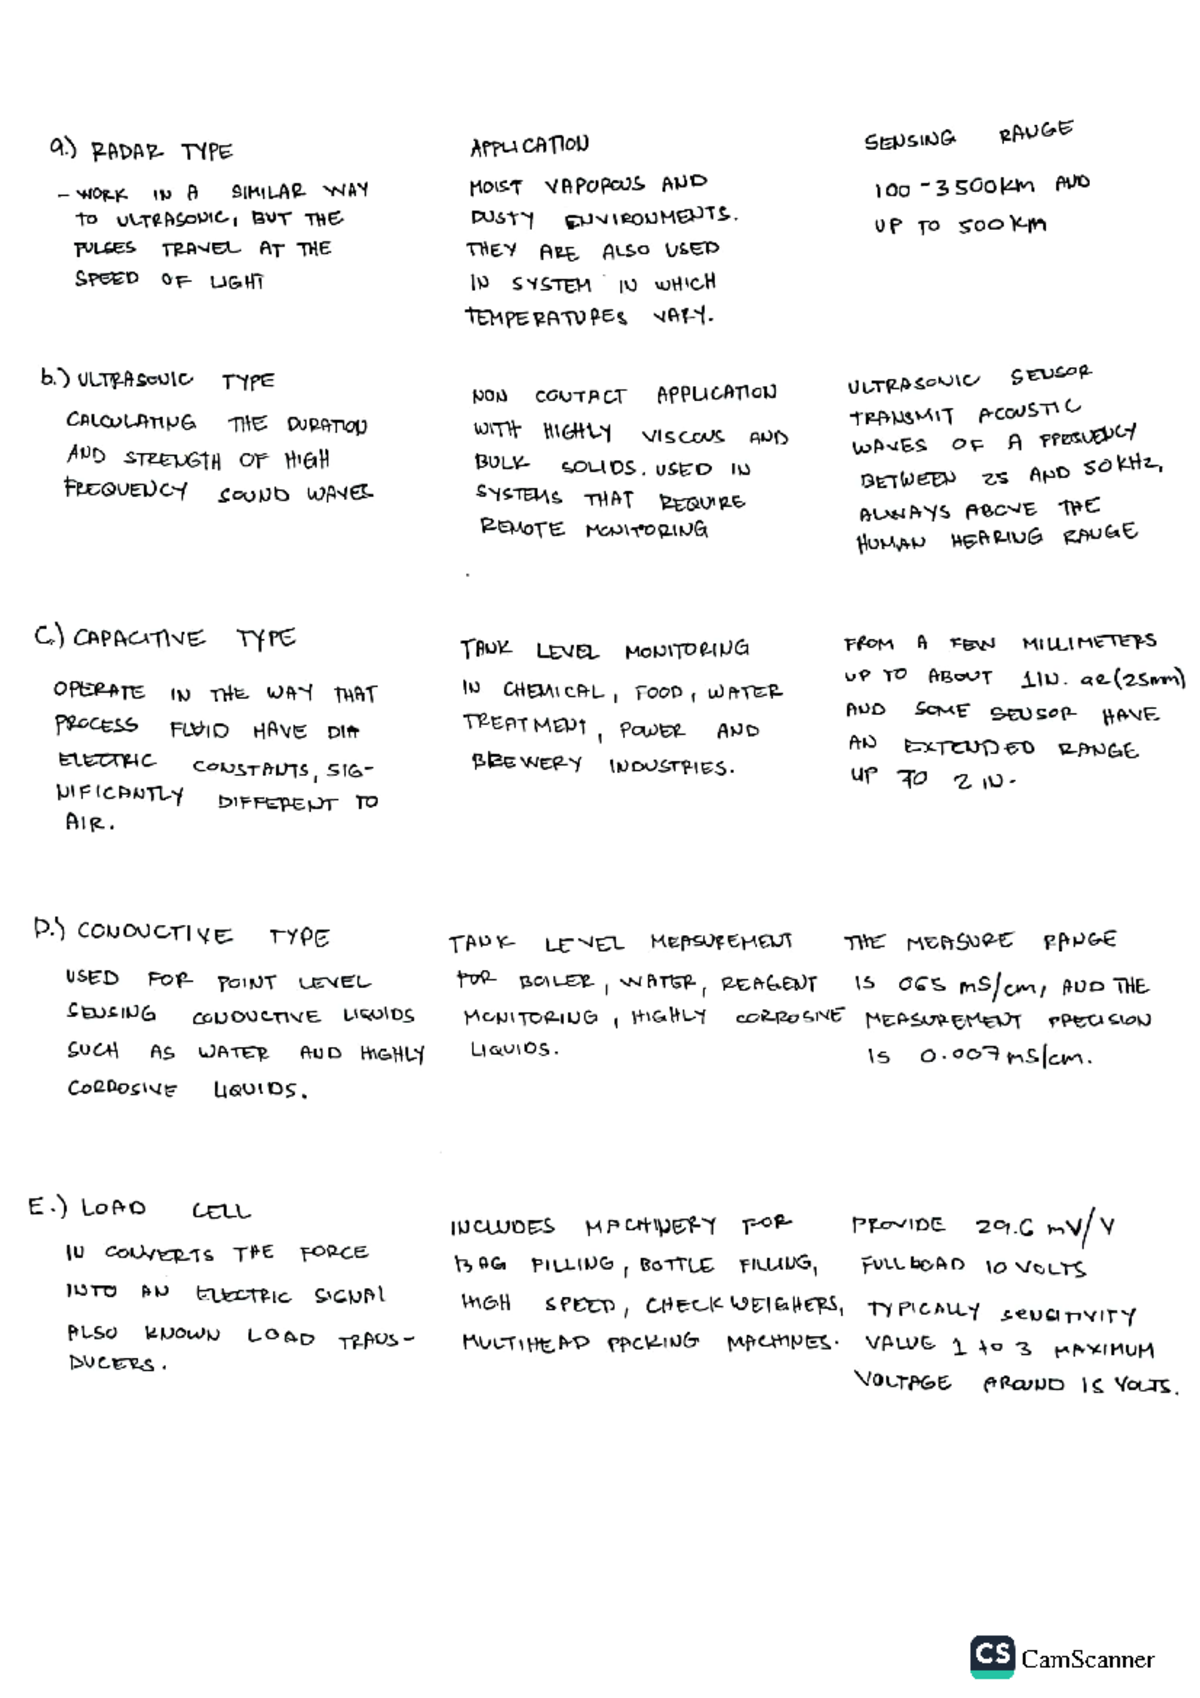 a.) RADAR TYPE
- WORK IN A SIMILAR WAY
TO ULTRASONIC, BUT THE
PULSES TRAVEL AT THE
SPEED OF LIGHT
APPLICATION
MOIST VAPOROUS AND
DUSTY ENVIRONMENTS.
THEY ARE ALSO USED
IN SYSTEM IN WHICH
TEMPERATURES VARY.
SENSING RANGE
100 - 3500KM AND
UP TO 500KM
b.) ULTRASONIC TYPE
CALCULATING THE DURATION
AND STRENGTH OF HIGH
FREQUENCY SOUND WAVES
NON CONTACT APPLICATION
WITH HIGHLY VISCOUS AND
BULK SOLIDS. USED IN
SYSTEMS THAT REQUIRE
REMOTE MONITORING
ULTRASONIC SENSOR
TRANSMIT ACOUSTIC
WAVES OF A FREQUENCY
BETWEEN 25 AND 50KHz,
ALWAYS ABOVE THE
HUMAN HEARING RANGE
C.) CAPACITIVE TYPE
OPERATE IN THE WAY THAT
PROCESS FLUID HAVE DIA
ELECTRIC CONSTANTS, SIG-
NIFICANTLY DIFFERENT TO
AIR.
TANK LEVEL MONITORING
IN CHEMICAL, FOOD, WATER
TREATMENT, POWER AND
BREWERY INDUSTRIES.
FROM A FEW MILLIMETERS
UP TO ABOUT 1IN. (25mm)
AND SOME SENSOR HAVE
AN EXTENDED RANGE
UP TO 2 IN.
D.) CONDUCTIVE TYPE
USED FOR POINT LEVEL
SENSING CONDUCTIVE LIQUIDS
SUCH AS WATER AND HIGHLY
CORROSIVE LIQUIDS.
TANK LEVEL MEASUREMENT
FOR BOILER, WATER, REAGENT
MONITORING, HIGHLY CORROSIVE
LIQUIDS.
THE MEASURE RANGE
IS 065 mS/cm, AND THE
MEASUREMENT PRECISION
IS 0.007 mS/cm.
E.) LOAD CELL
IN CONVERTS THE FORCE
INTO AN ELECTRIC SIGNAL
ALSO KNOWN LOAD TRANS-
DUCERS.
INCLUDES MACHINERY FOR
BAG FILLING, BOTTLE FILLING,
HIGH SPEED, CHECKWEIGHERS,
MULTIHEAD PACKING MACHINES.
PROVIDE 29.6 mV/V
FULL LOAD 10 VOLTS
TYPICALLY SENSITIVITY
VALUE 1 to 3 MAXIMUM
VOLTAGE AROUND 15 VOLTS.
CS CamScanner